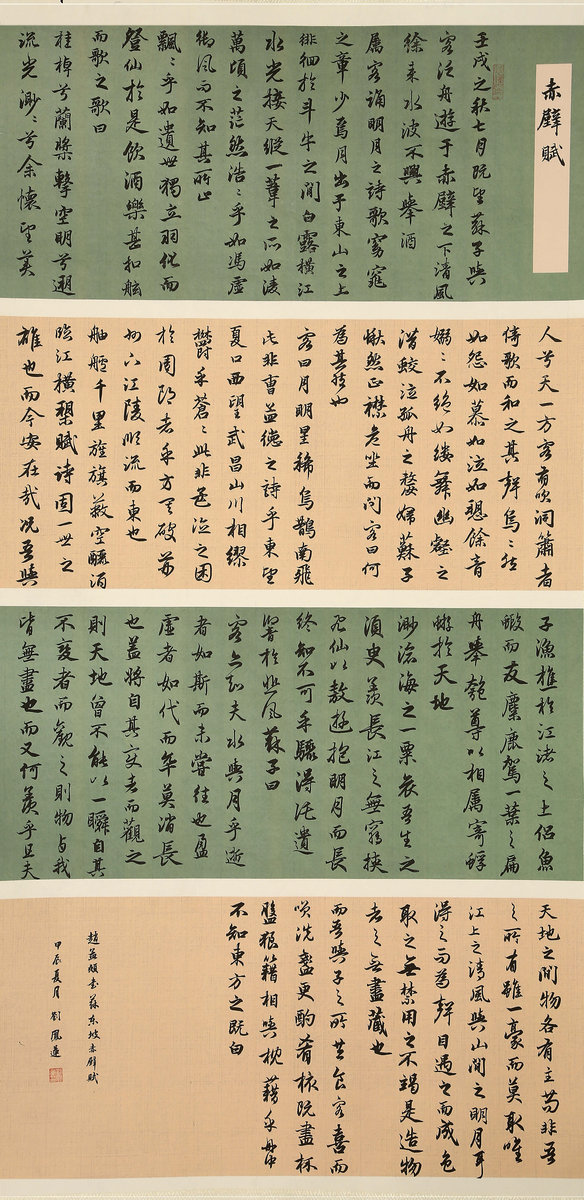 赤壁賦
壬戌之秋七月既望蘇子與
客泛舟遊于赤壁之下清風
徐來水波不興舉酒
屬客誦明月之詩歌窈窕
之章少焉月出于東山之上
徘徊於斗牛之間白露橫江
水光接天縱一葦之所如淩
萬頃之茫然浩〻乎如馮虛
御風而不知其所止
飄〻乎如遺世獨立羽化而
登仙於是飲酒樂甚扣舷
而歌之歌曰
桂棹兮蘭槳擊空明兮遡
流光渺〻兮余懷望美
人兮天一方客有吹洞簫者
倚歌而和之其聲烏〻然
如怨如慕如泣如愬餘音
嫋〻不絕如縷舞幽壑之
潛蛟泣孤舟之嫠婦蘇子
愀然正襟危坐而問客曰何
為其然也
客曰月明星稀烏鵲南飛
此非曹孟德之詩乎東望
夏口西望武昌山川相繆
鬱乎蒼〻此非孟德之困
於周郎者乎方其破荊
州下江陵順流而東也
舳艫千里旌旗蔽空釃酒
臨江橫槊賦詩固一世之
雄也而今安在哉況吾與
子漁樵於江渚之上侶魚
鰕而友麋鹿駕一葉之扁
舟舉匏尊以相屬寄蜉
蝣於天地
渺滄海之一粟哀吾生之
須臾羨長江之無窮挾
飛仙以敖遊抱明月而長
終知不可乎驟得託遺
響於悲風蘇子曰
客亦知夫水與月乎逝
者如斯而未嘗往也盈
虛者如代而卒莫消長
也蓋將自其變者而觀之
則天地曾不能以一瞬自其
不變者而觀之則物與我
皆無盡也而又何羨乎且夫
天地之間物各有主苟非吾
之所有雖一豪而莫取唯
江上之清風與山間之明月耳
得之而為聲目遇之而成色
取之無禁用之不竭是造物
者之無盡藏也
而吾與子之所共食客喜而
笑洗盞更酌肴核既盡杯
盤狼籍相與枕藉乎舟中
不知東方之既白
趙孟頫書蘇東坡赤壁賦
甲辰夏月劉鳳蓮